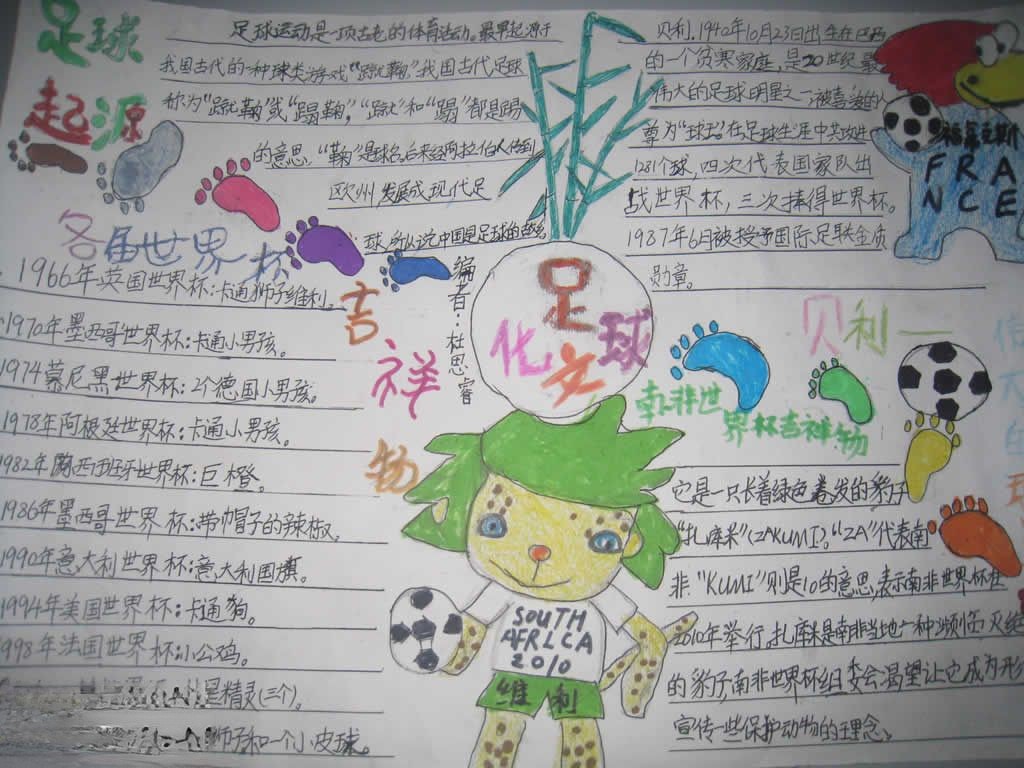 足球
起源
足球运动是一项古老的体育活动。最早起源于
我国古代的一种球类游戏“蹴鞠”我国古代足球
称为“蹴鞠”或“蹋鞠”,“蹴”和“蹋”都是踢
的意思,“鞠”是球名。后来经阿拉伯人传到
欧州,发展成现代足
球。所以说中国是足球的
各届世界杯
吉祥物
1966年英国世界杯:卡通狮子维利。
1970年墨西哥世界杯:卡通小男孩。
1974慕尼黑世界杯:2个德国小男孩。
1978年阿根廷世界杯:卡通小男孩。
1982年西班牙世界杯:巨橙。
1986年墨西哥世界杯:带帽子的辣椒。
1990年意大利世界杯:意大利国旗。
1994年美国世界杯:卡通狗。
1998年法国世界杯:小公鸡。
黑精灵(三个)。
狮子和一个小皮球。
编者:杜思睿
足球
文化
SOUTH
AFRLCA
2010
维利
贝利.1940年10月23日出生在巴西
的一个贫寒家庭,是20世纪最
伟大的足球明星之一被喜爱的人
尊为“球王”在足球生涯中共攻进
1281个球,四次代表国家队出
战世界杯,三次捧得世界杯。
1987年6月被授予国际足联金质
勋章。
FRA
NCE
贝利一
伟大的球
南非世
界杯吉祥物
它是一只长着绿色卷发的豹子
“扎库米”(ZAKUMI)。“ZA”代表南
非“KUMI”则是10的意思,表示南非世界杯在
2010年举行。扎库米是南非当地一种濒临灭绝
的豹子,南非世界杯组委会渴望让它成为形
宣传一些保护动物的理念。